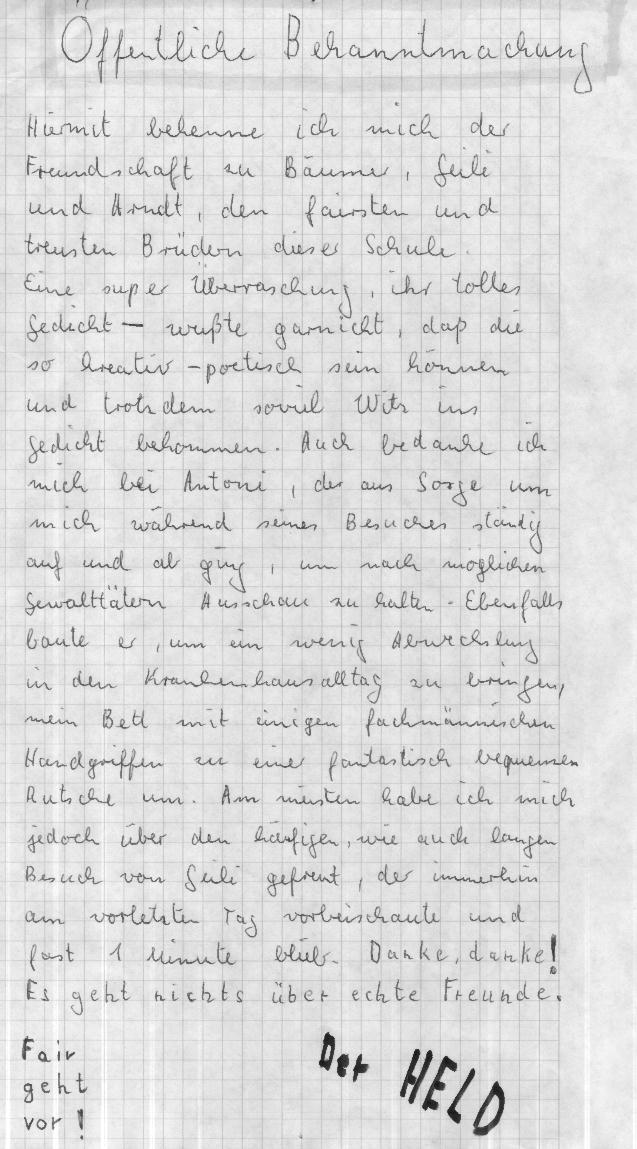 Öffentliche Bekanntmachung
Hiermit bekenne ich mich der
Freundschaft zu Bäumer, Geili
und Arndt, den fairsten und
treusten Brüdern dieser Schule.
Eine super Überraschung, ihr tolles
Gedicht – wußte garnicht, daß die
so kreativ-poetisch sein können
und trotzdem soviel Witz ins
Gedicht bekommen. Auch bedanke ich
mich bei Antoni, der aus Sorge um
mich während seines Besuches ständig
auf und ab ging, um nach möglichen
Gewalttätern Ausschau zu halten. Ebenfalls
baute er, um ein wenig Abwechslung
in den Krankenhausalltag zu bringen,
mein Bett mit einigen fachmännischen
Handgriffen zu einer fantastisch bequemen
Rutsche um. Am meisten habe ich mich
jedoch über den häufigen, wie auch langen
Besuch von Geili gefreut, der immerhin
am vorletzten Tag vorbeischaute und
fast 1 Minute blieb. Danke, danke!
Es geht nichts über echte Freunde.
Fair
geht
vor!
Der HELD